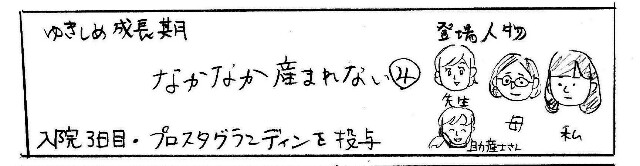 ゆきしめ成長期
なかなか産まれない④
入院3日目・プロスタグランディンを投与
登場人物
先生
母
私
助産士さん